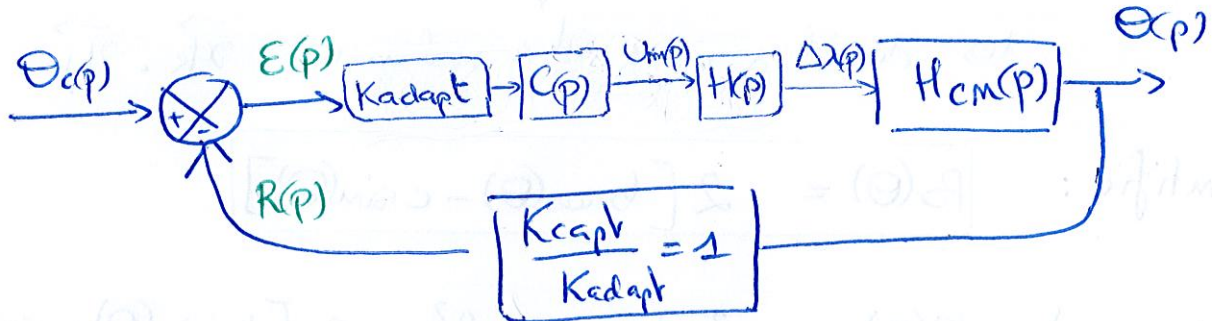 Θc(p) ε(p) Kadapt C(p) Um(p) H(p) Δλ(p) Hcm(p) Θ(p)
+ -
R(p)
Kcapt / Kadapt = 1